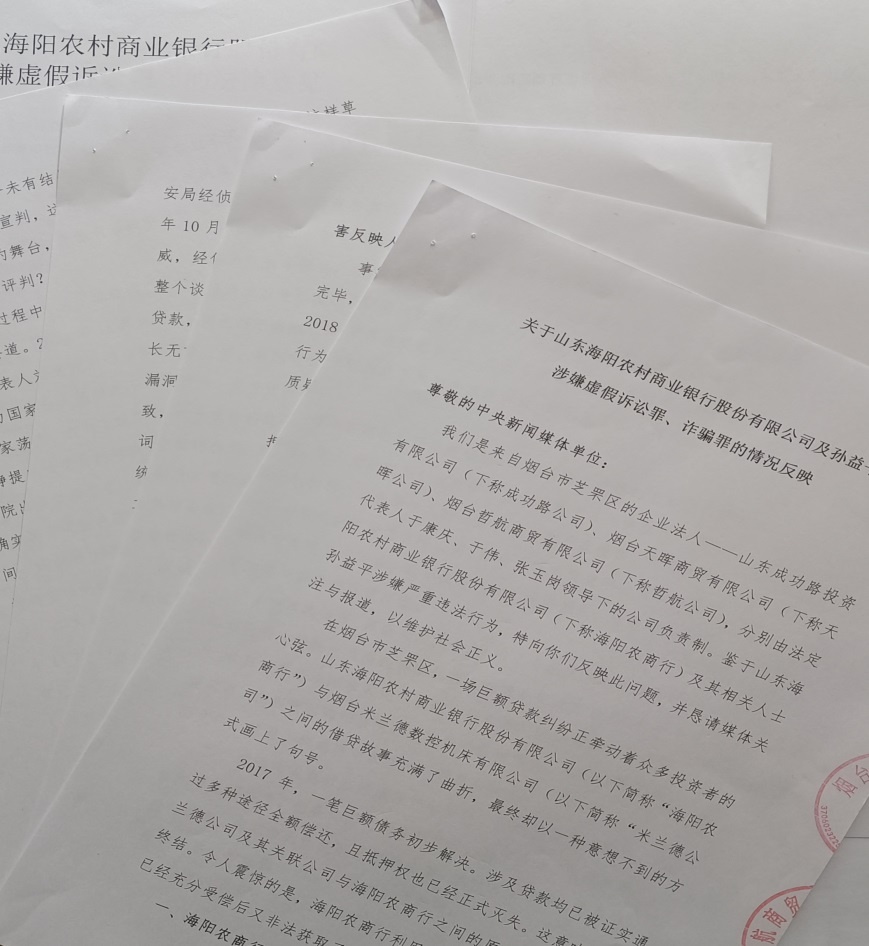 海阳农村商业银行
嫌虚假诉讼
未有结
宣判，
的舞台，
评判？
过程中
道。
表人
国家
家荡
提
院
确实
间
安局经侦
年 10 月
威，经
整个谈
贷款，
长无
漏洞
致，
词
害反映人
事
完毕，
2018
行为
质疑
关于山东海阳农村商业银行股份有限公司及孙益
涉嫌虚假诉讼罪、诈骗罪的情况反映
尊敬的中央新闻媒体单位：
我们是来自烟台市芝罘区的企业法人——山东成功路投资
有限公司（下称成功路公司）、烟台天晖商贸有限公司（下称天
晖公司）、烟台哲航商贸有限公司（下称哲航公司），分别由法定
代表人于康庆、于伟、张玉岗领导下的公司负责制。鉴于山东海
阳农村商业银行股份有限公司（下称海阳农商行）及其相关人士
孙益平涉嫌严重违法行为，特向你们反映此问题，并恳请媒体关
注与报道，以维护社会正义。
在烟台市芝罘区，一场巨额贷款纠纷正牵动着众多投资者的
心弦。山东海阳农村商业银行股份有限公司（以下简称“海阳农
商行”）与烟台米兰德数控机床有限公司（以下简称“米兰德公
司”）之间的借贷故事充满了曲折，最终却以一种意想不到的方
式画上了句号。
2017 年，一笔巨额债务初步解决。涉及贷款均已被证实通
过多种途径全额偿还，且抵押权也已经正式灭失。这意
兰德公司及其关联公司与海阳农商行之间的
终结。令人震惊的是，海阳农商行利用
已经充分受偿后又非法获取
一、海阳农商行